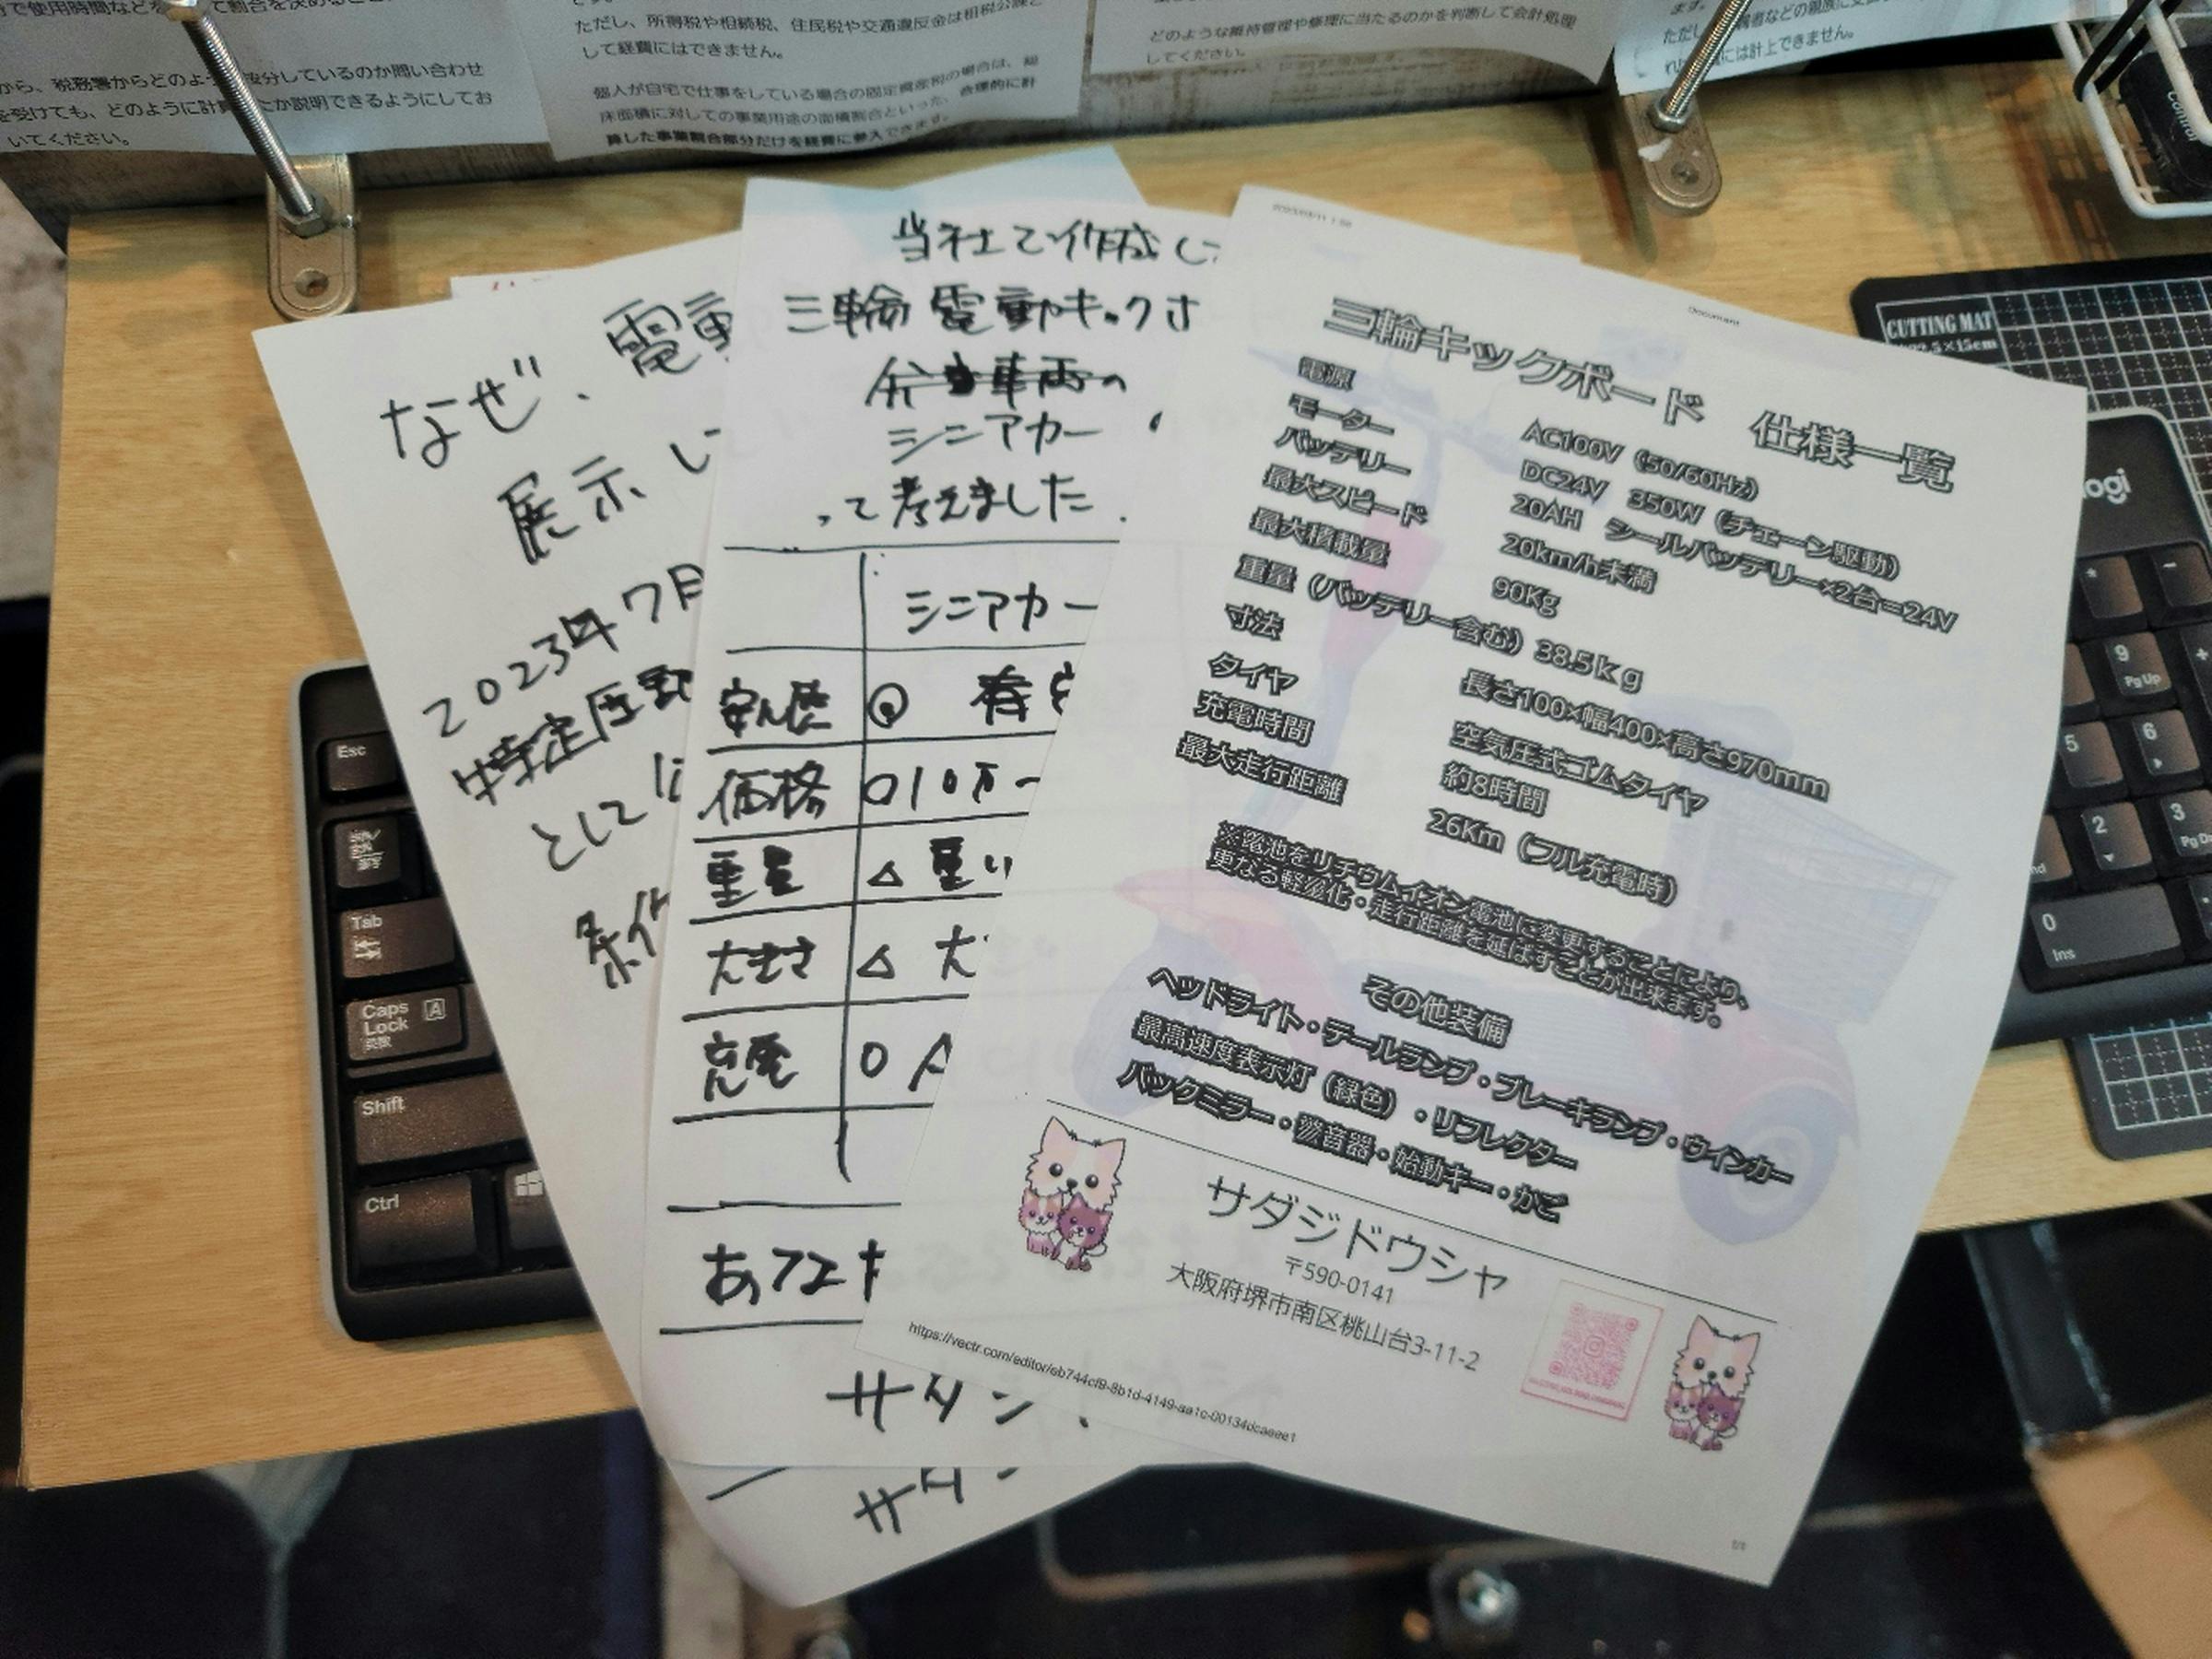 て使用時間などを
から、税務署からどのよう 按分しているのか問い合わせ
を受けても、どのように計算 たか説明できるようにしてお
いてください。
ただし、所得税や相続税、住民税や交通違反金は租税公課と
して経費にはできません。
個人が自宅で仕事をしている場合の固定資産税の場合は、総
床面積に対しての事業用途の面積割合といった、合理的に計
算した事業割合部分だけを経費に参入できます。
どのような維持管理や修理に当たるのかを判断して会計処理
してください。
ます。
には計上できません。
なぜ、電動
展示し
2023年7月
特定
として
条件
サダジ
当社で作成し
三輪電動キックさ
シニアカー
って考えました
シニアカー
安定 ◎
価格 ○10万~
重量 △ 重い
大きさ △ 大
充電 ○ A
あなた
サダジ
三輪キックボード 仕様一覧
Document
電源 AC100V (50/60Hz)
モーター DC24V 350W (チェーン駆動)
バッテリー 20AH シールバッテリー×2台=24V
最大スピード 20km/h未満
最大積載量 90Kg
重量 (バッテリー含む) 38.5kg
寸法 長さ100×幅400×高さ970mm
タイヤ 空気圧式ゴムタイヤ
充電時間 約8時間
最大走行距離 26Km (フル充電時)
※電池をリチウムイオン電池に変更することにより、
更なる軽量化・走行距離を延ばすことが出来ます。
その他装備
ヘッドライト・テールランプ・ブレーキランプ・ウインカー
最高速度表示灯 (緑色)・リフレクター
バックミラー・警音器・始動キー・かご
サダジドウシャ
〒590-0141
大阪府堺市南区桃山台3-11-2
https://vectr.com/editor/eb744cf8-8b1d-4149-aa1c-00134dcaeee1
1/1
CUTTING MAT
22.5×15cm
logi
Esc
Tab
Caps Lock A
英数
Shift
Ctrl
* -
9 PgUp +
5 6
2 3 PgDn
0 Ins